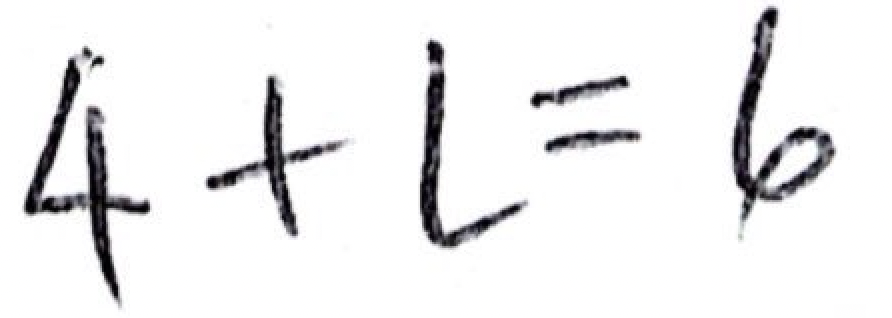 4 + L = 6